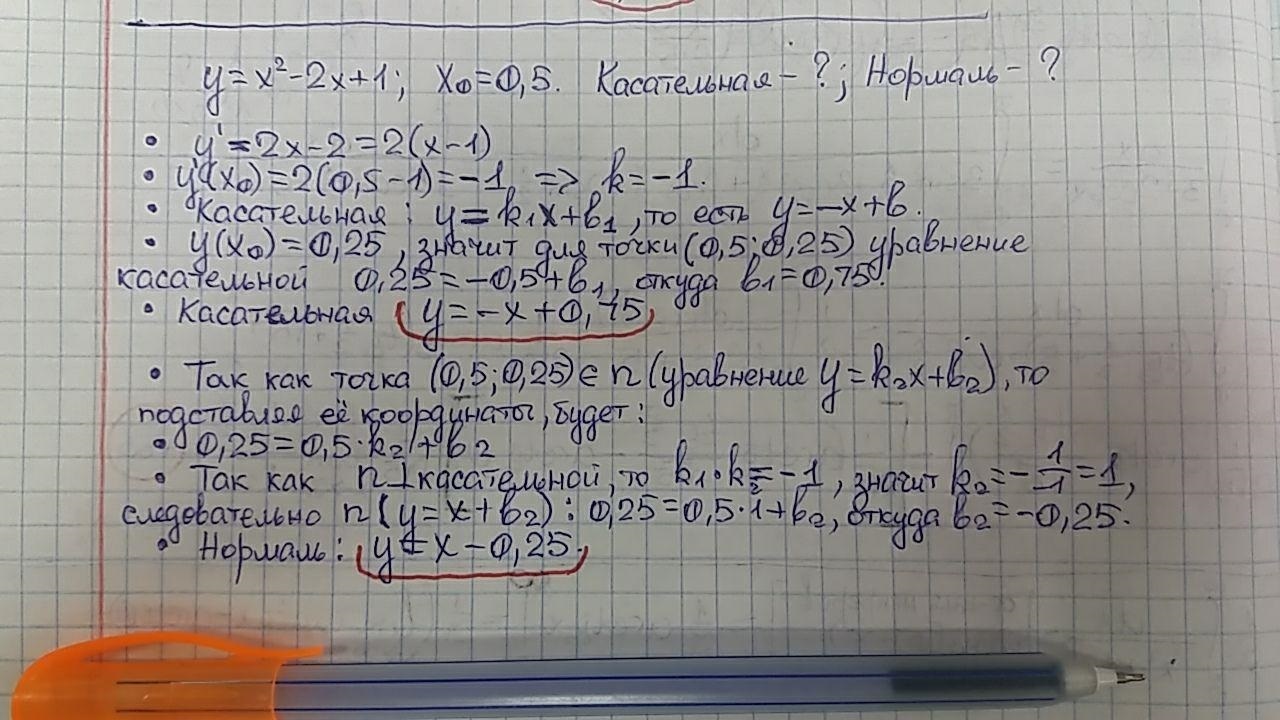 y=x²-2x+1; x₀=0,5. Касательная - ?; Нормаль - ?
• y'=2x-2=2(x-1)
• y'(x₀)=2(0,5-1)=-1 => k=-1.
• Касательная: y=k₁x+b₁, то есть y=-x+b.
• y(x₀)=0,25, значит для точки (0,5;0,25) уравнение
касательной 0,25=-0,5+b₁, откуда b₁=0,75.
• Касательная y=-x+0,75
• Так как точка (0,5;0,25)∈n (уравнение y=k₂x+b₂), то
подставляя её координаты, будет:
• 0,25=0,5·k₂+b₂
• Так как n⊥касательной, то k₁·k₂=-1, значит k₂=-1/-1=1,
следовательно n (y=x+b₂): 0,25=0,5·1+b₂, откуда b₂=-0,25.
• Нормаль: y=x-0,25.